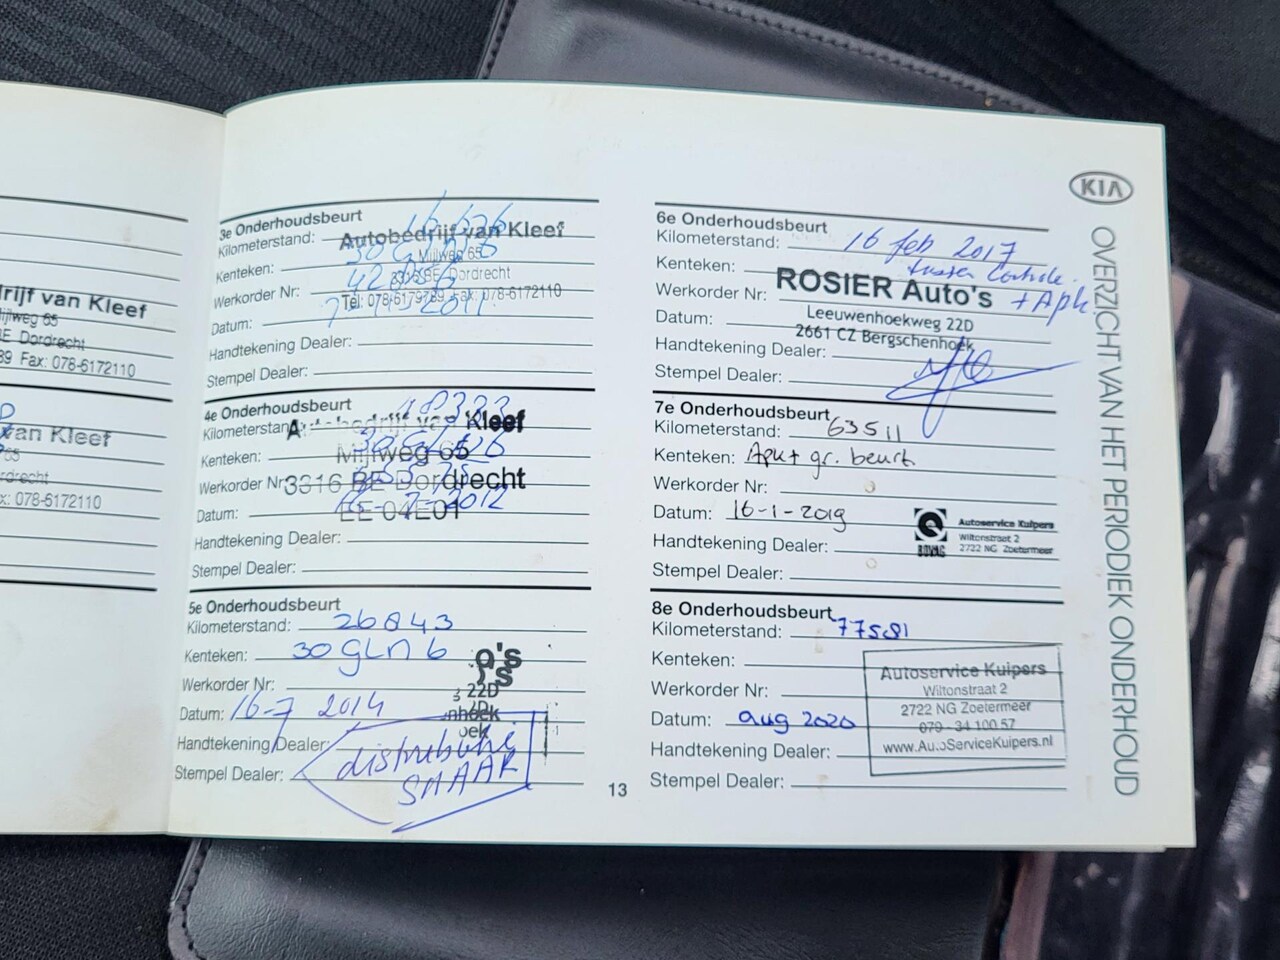 drijf van Kleef
Mijlweg 65
BE Dordrecht
89 Fax: 078-6172110
van Kleef
65
rdrecht
x: 078-6172110
3e Onderhoudsbeurt
Kilometerstand: 16 626
Autobedrijf van Kleef
Kenteken:
Mijlweg 65
3316 BE Dordrecht
Werkorder Nr:
Tel: 078-6179789 Fax: 078-6172110
Datum: 2011
Handtekening Dealer:
Stempel Dealer:
4e Onderhoudsbeurt
Kilometerstand: 18323
Autobedrijf van Kleef
Kenteken:
Mijlweg 65
Werkorder Nr:
3316 BE Dordrecht
Datum: 2012
EE 04E01
Handtekening Dealer:
Stempel Dealer:
5e Onderhoudsbeurt
Kilometerstand: 26843
Kenteken: 30 GLN 6
o's
's
Werkorder Nr:
22D
Datum: 16-7 2014
nhoek
oek
Handtekening Dealer:
distributie
SNAAR
Stempel Dealer:
13
KIA
OVERZICHT VAN HET PERIODIEK ONDERHOUD
6e Onderhoudsbeurt
Kilometerstand: 16 feb 2017
Kenteken: tussen Controle
+ Apk
Werkorder Nr:
ROSIER Auto's
Leeuwenhoekweg 22D
Datum:
2661 CZ Bergschenhoek
Handtekening Dealer:
Stempel Dealer:
7e Onderhoudsbeurt
Kilometerstand: 63511
Kenteken: Apk + gr. beurt
Werkorder Nr:
Datum: 16-1-2019
BOVAG
Autoservice Kuipers
Wiltonstraat 2
2722 NG Zoetermeer
Handtekening Dealer:
Stempel Dealer:
8e Onderhoudsbeurt
Kilometerstand: 77581
Kenteken:
Autoservice Kuipers
Wiltonstraat 2
Werkorder Nr:
2722 NG Zoetermeer
Datum: aug 2020
079 - 34 100 57
Handtekening Dealer:
www.AutoServiceKuipers.nl
Stempel Dealer: